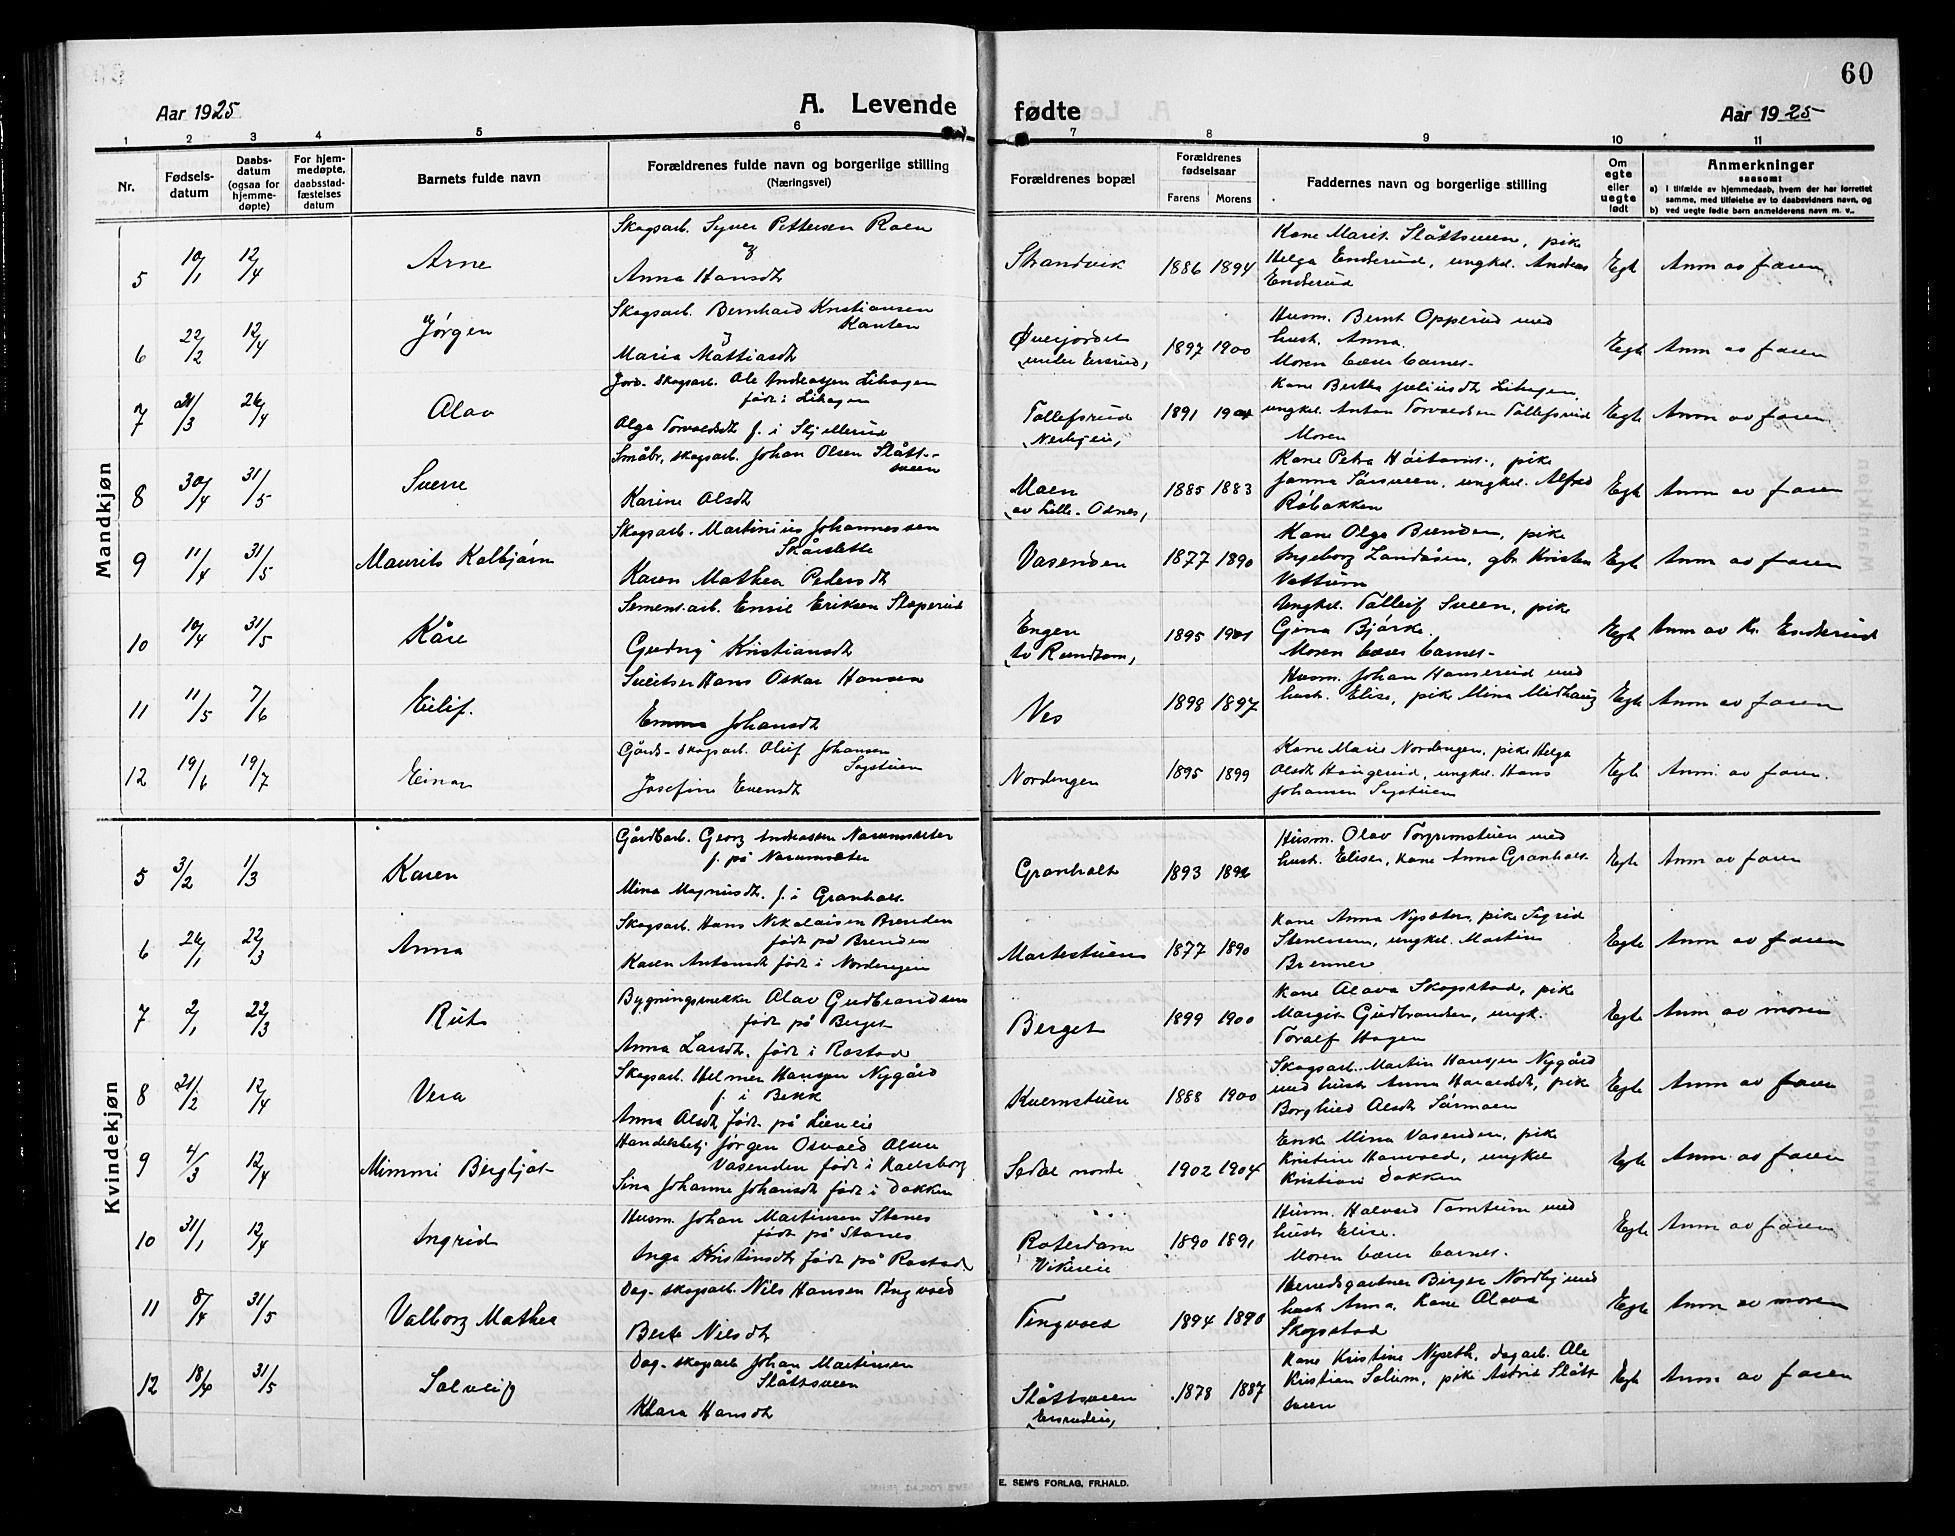 60
Aar 1925
A. Levende fødte
Aar 1925
1 2 3 4 5 6 7 8 9 10 11
Nr.
Fødsels-
datum
Daabs-
datum
(ogsaa for
hjemme-
døpte)
For hjem-
medøpte,
daabsstad-
fæstelses
datum
Barnets fulde navn
Forældrenes fulde navn og borgerlige stilling
(Næringsvei)
Forældrenes bopæl
Forældrenes
fødselsaar
Farens Morens
Faddernes navn og borgerlige stilling
Om
egte
eller
uegte
født
Anmerkninger
saasom:
a) i tilfælde av hjemmedaab, hvem der har forrettet
samme, med tilføielse av to daabsvidners navn, og
b) ved uegte fødte barn anmelderens navn m. v..
Mandkjøn
5 10/1 12/4 Arne
Skogsarb. Syver Pettersen Roen
og
Anna Hansdt
Strandvik 1886 1894
Kone Marit Slåttsveen, pike
Helga Enderud, ungkl. Andreas
Enderud
Egte Anm av faren
6 22/2 12/4 Jørgen
Skogsarb. Bernhard Kristiansen
Kanten
Maria Mattiasdt
Øverjordet
under Ensrud, 1897 1900
Husm. Bernt Opperud med
hust. Anna.
Moren bærer barnet.
Egte Anm av faren
7 21/3 26/4 Olav
Jord- skogsarb. Ole Andreassen Lihagen
født i Lihagen
Olga Torvaldsdt f. i Skjellerud
Tollefsrud 1891
Kone Bertha Juliusdt Lihagen,
ungkl. Anton Torvaldsen Tollefsrud
Moren
Egte Anm av faren
8 30/4 31/5 Sverre
Småbr, skogsarb. Johan Olsen Slått-
sveen
Karine Olsdt
Moen
av Lille- Odnes, 1885 1883
Kone Petra pike
Janna Sørsveen, ungkl. Alfred
Røbakken
Egte Anm av faren
9 11/4 31/5 Maurits Kolbjørn
Skogsarb. Martinius Johannessen
Skårslette
Karen Mathea Pedersdt
Vasenden 1877 1890
Kone Olga Brenden, pike
Ingeborg Landåsen, gbr. Kristen
Vattum
Egte Anm av faren
10 10/4 31/5 Kåre
Sement.arb. Emil Eriksen Sloperud
Gudny Kristiansdt
Engen 1895 1901
Ungkl. Tolleif Sveen, pike
Gina Bjørke.
Moren bærer barnet-
Egte Anm av Kr. Enderud
11 11/5 7/6 Eilif.
Sveitser Hans Oskar Hansen
Emma Johansdt
Ves 1898 1897
Husm. Johan Hanserud med
hust. Elise, pike Mina Midthaug
Egte Anm av faren
12 19/6 19/7 Einar
Gårds- skogsarb. Oluf Johansen
Sagstuen
Josefine Evensdt
Nordengen 1895 1899
Kone Marie Nordengen, pike Helga
Olsdt Haugerud, ungkl. Hans
Johansen Sagstuen
Egte Anm. av faren.
Kvindekjøn
5 3/2 1/3 Karen
Gårdsarb. Georg Andreassen Narumsæter
f. på Narumsæter
Mina Magnusdt. f. i Granholt.
Granholt 1893 1892
Husm. Olav Torgrimstuen med
hust. Elise, kone Anna Granholt.
Egte Anm av faren
6 26/1 22/3 Anna
Skogsarb. Hans Nikolaisen Brenden
født på Brenden
Karen Antonsdt født i Nordengen
Martestuen 1877 1890
Kone Anna Nysæter, pike Sigrid
Stenersen, ungkl. Martin
Brenner
Egte Anm av faren
7 2/1 22/3 Rut
Bygningssnekker Olav Gudbrandsen
født på Berget
Anna Larsdt. født i Rostad
Berget 1899 1900
Kone Olava Skogstad, pike
Margit Gudbrandsen, ungk.
Toralf Hagen
Egte Anm av moren
8 21/2 12/4 Vera
Skogsarb. Helmer Hansen Nygård
f. i Bekk
Anna Olsdt født på Lieneie
Kvernstuen 1888 1900
Skogsarb. Martin Hansen Nygård
med hust. Anna Haraldsdt, pike
Borghild Olsdt Sørmoen
Egte Anm av faren
9 4/3 12/4 Mimmi Bergljot
Handelsbetj. Jørgen Osvald Olsen
Vasenden født i Karlsborg
Sina Johanne Johansdt født i Dokken
Sedal nordre 1902 1904
Enke Mina Vasenden, pike
Kristine Hanvold, ungkl
Kristian Dokken
Egte Anm av faren
10 31/1 12/4 Ingrid
Husm. Johan Martinsen Stenes
født på Stenes
Inga Kristinsdt født på Rostad
Roterdam
Vikereie 1890 1891
Husm. Halvord Tomtum med
hust. Elise.
Moren bærer barnet.
Egte Anm av faren
11 8/4 31/5 Valborg Mathea
Dag- skogsarb. Nils Hansen Tingvold
Berte Nilsdt
Tingvold 1894 1890
Herredsgartner Birger Nordby med
hust Anna, Kone Olava
Skogstad
Egte Anm av moren
12 18/4 31/5 Solveig
Dag- skogsarb Johan Martinsen
Slåttsveen
Klara Hansdt
Slåttsveen
Ensrudeie, 1878 1887
Kone Kristine Nyseth, dagarb. Ole
Kristian Solum, pike Astrid Slått-
sveen
Egte Anm. av faren
E. SEM'S FORLAG, FR.HALD.